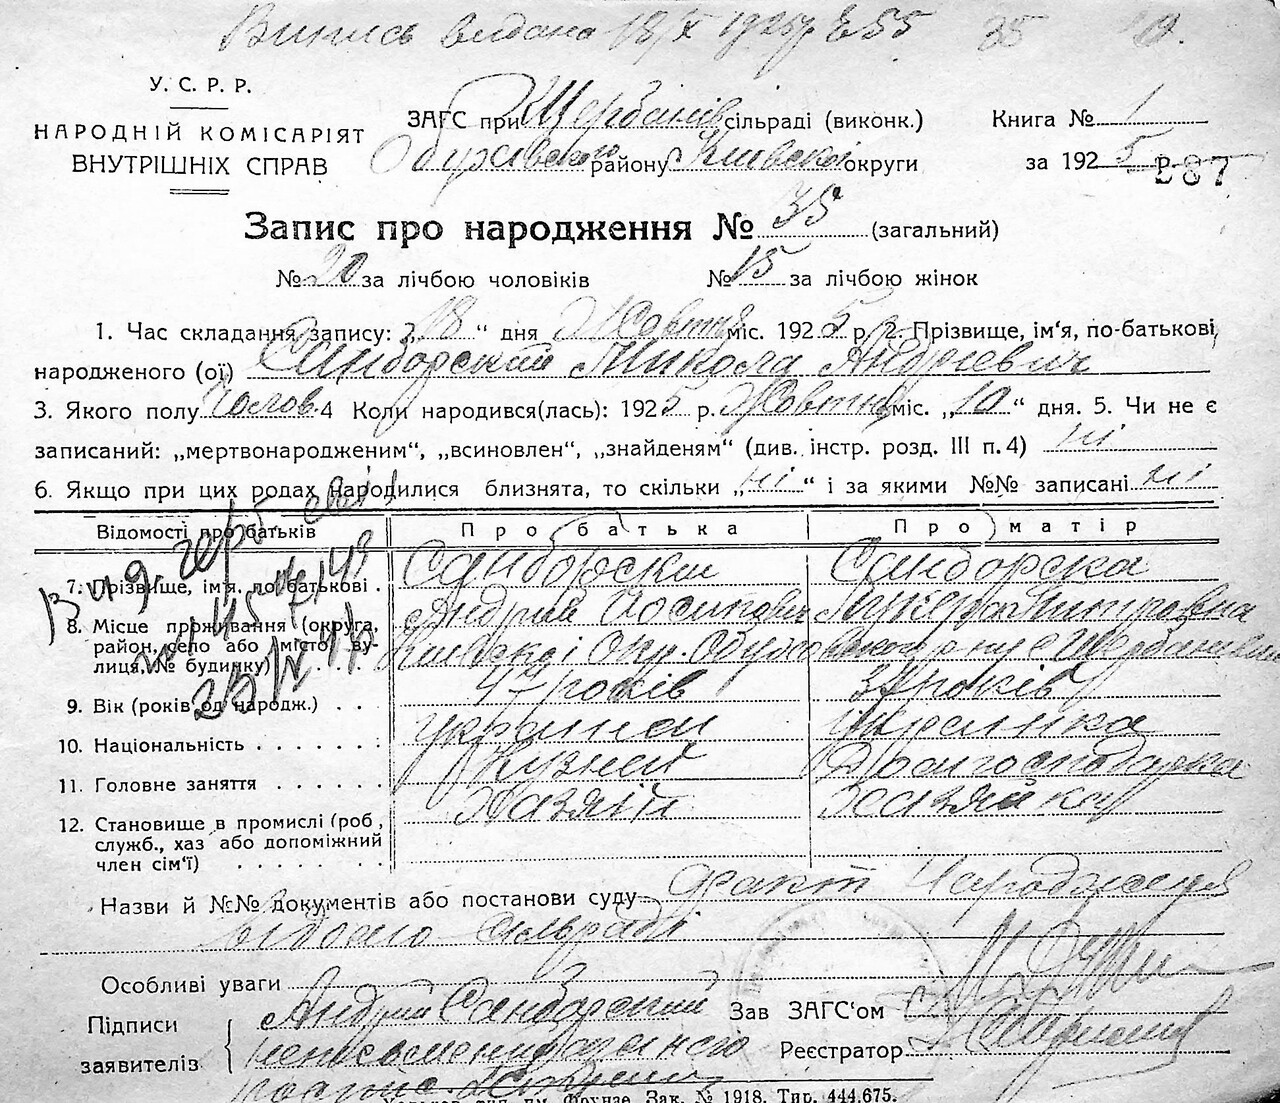 Випись видана 18/X 1925 р. №55 35
У. С. Р. Р.
НАРОДНІЙ КОМІСАРІЯТ
ВНУТРІШНІХ СПРАВ
ЗАГС при Щербанів сільраді (виконк.)
Обухівського району Київської округи
Книга № 1
за 1925 р.
287
Запис про народження № 35 (загальний)
№ 20 за лічбою чоловіків № 15 за лічбою жінок
1. Час складання запису: „18“ дня Жовтня міс. 1925 р. 2. Прізвище, ім'я, по-батькові,
народженого (ої) Санборский Микола Андрієвич
3. Якого полу чолов. 4 Коли народився(лась): 1925 р. Жовтня міс. „10“ дня. 5. Чи не є
записаний: „мертвонародженим“, „всиновлен“, „знайденям“ (див. інстр. розд. III п. 4) ні
6. Якщо при цих родах народилися близнята, то скільки „ні“ і за якими №№ записані ні
Відомості про батьків Про батька Про матір
7. Прізвище, ім'я, по-батькові . Санборский Санборска
Андрий Йосипович Дмитровна
8. Місце проживання (округа,
район, село або місто, ву-
лиця, № будинку) . . . Київської Окр. Обухо
9. Вік (років од народж.) . . 47 років 34 років
10. Національність . . . . . . . украінец украінка
11. Головне заняття . . . . . . Кузнец Домогосподарка
12. Становище в промислі (роб,
служб., хаз або допоміжний
член сім'ї) . . . . . . Хазяїн Хазяйка
Назви й №№ документів або постанови суду Факт Народження
відомо сільраді
Особливі уваги
Підписи
заявителів
Андрий Санборский
Зав ЗАГС'ом
Реєстратор
Зак. № 1918. Тир. 444.675.